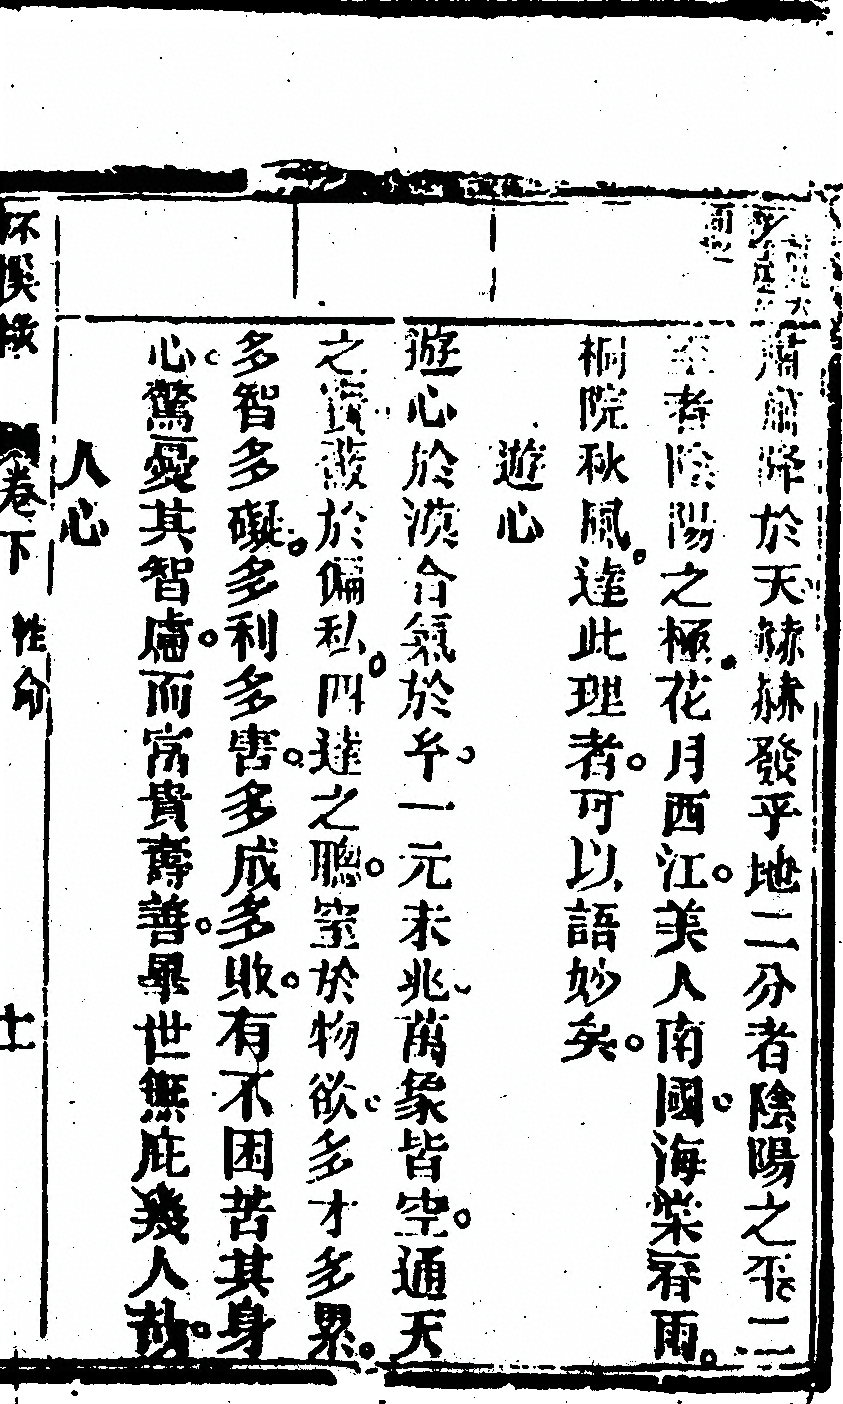 肅肅降於天赫赫發乎地二分者陰陽之平二
至者陰陽之極花月西江美人南國海棠春雨
桐院秋風達此理者可以語妙矣
遊心
遊心於漠合氣於兮一元未兆萬象皆空通天
之竅蔽於偏私四達之聰窒於物欲多才多累
多智多礙多利多害多成多敗有不困苦其身
心驚憂其智慮而富貴壽善畢世無庇幾人哉
人心
卷下
性命
十